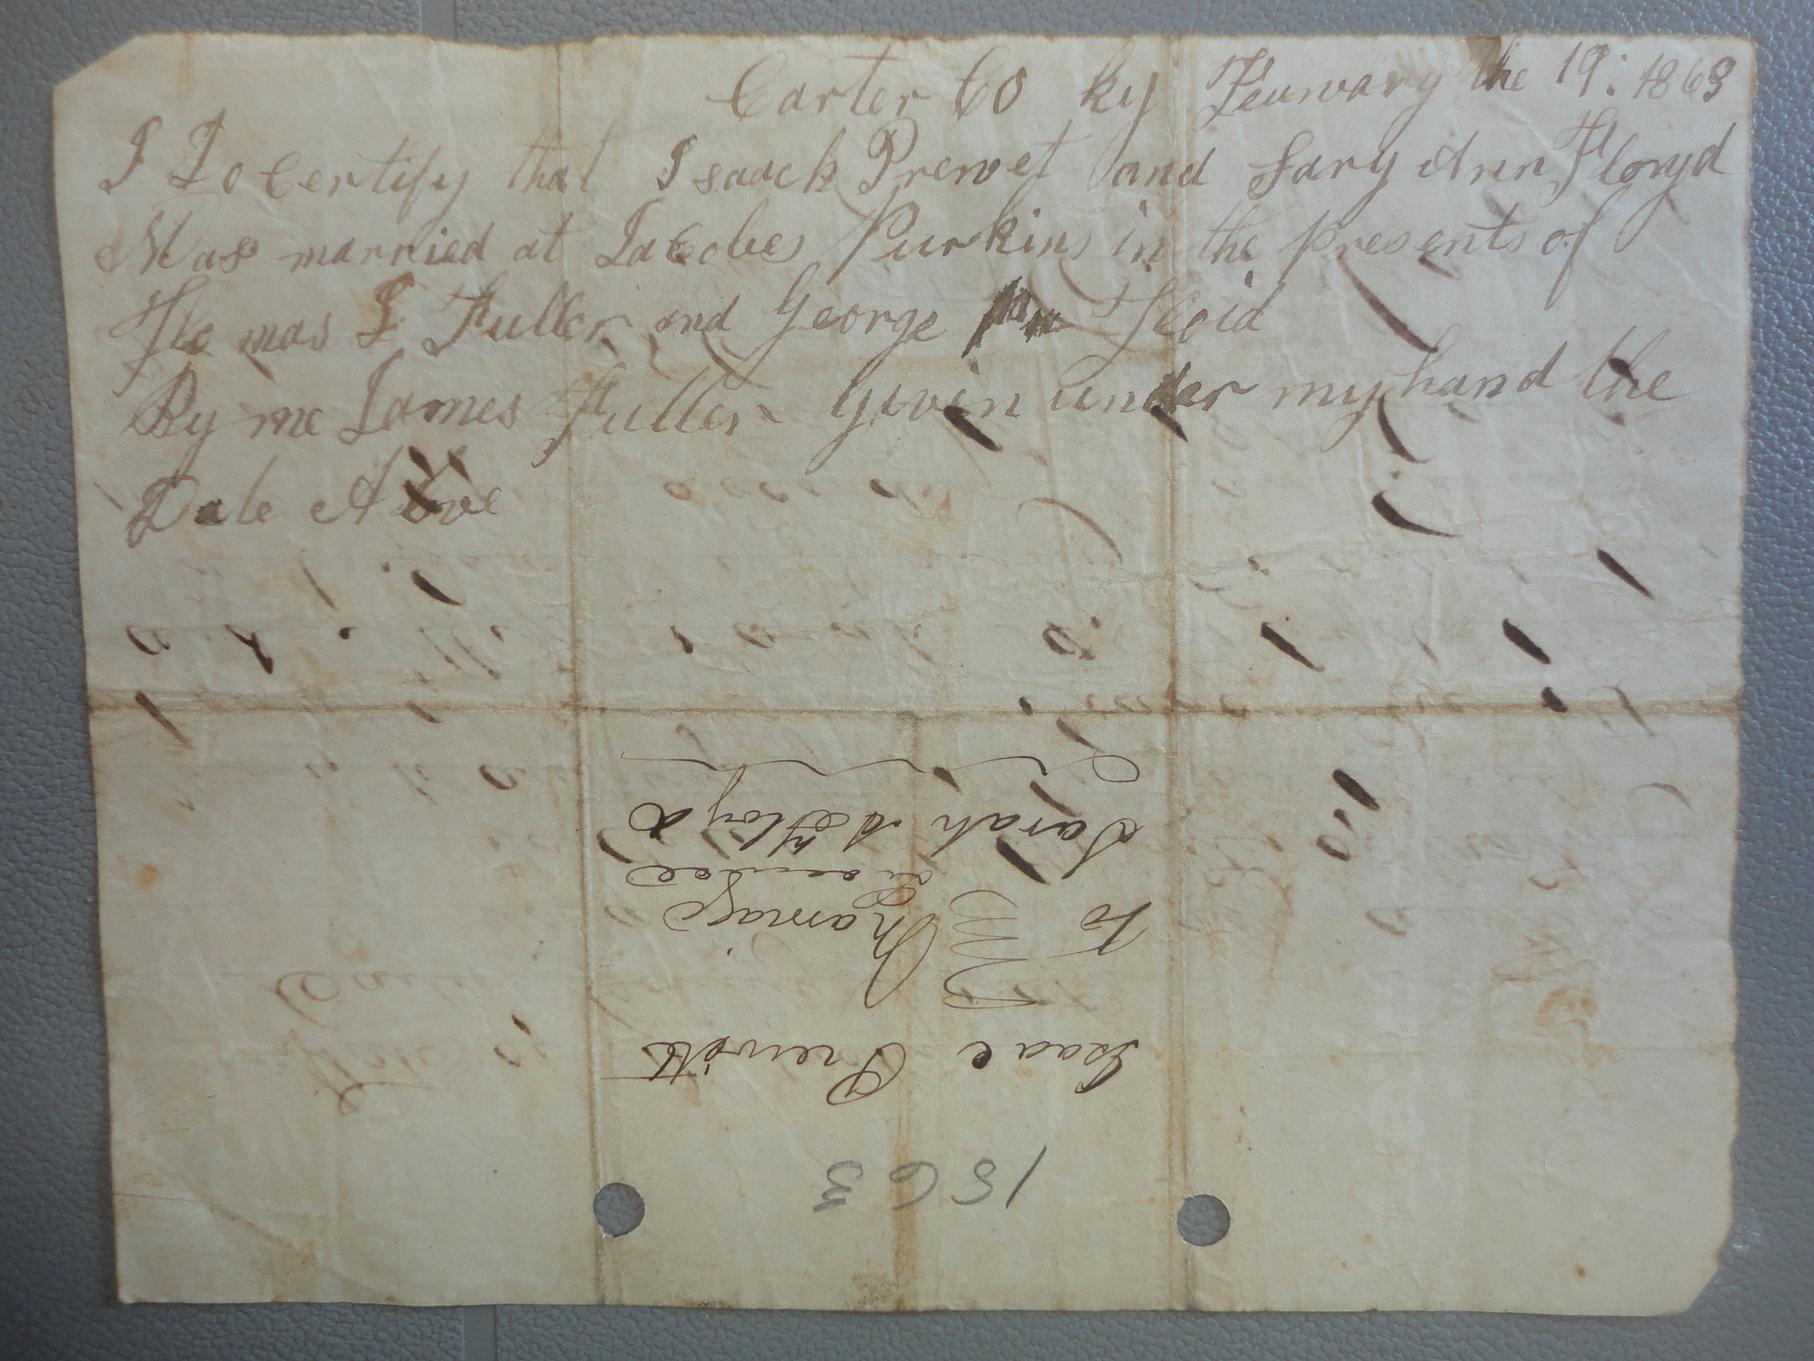 Carter Co Ky Feurwary the 19: 1863
I Do Certify that Isaack Prewet and Sary Ann Floyd
Was married at Jacobes Purkins in the presents of
Thomas J Fuller and George Floid
By me James Fuller Given under my hand the
Date Above
Isaac Prewitt
To Marriage
License
Sarah A Floyd
1863